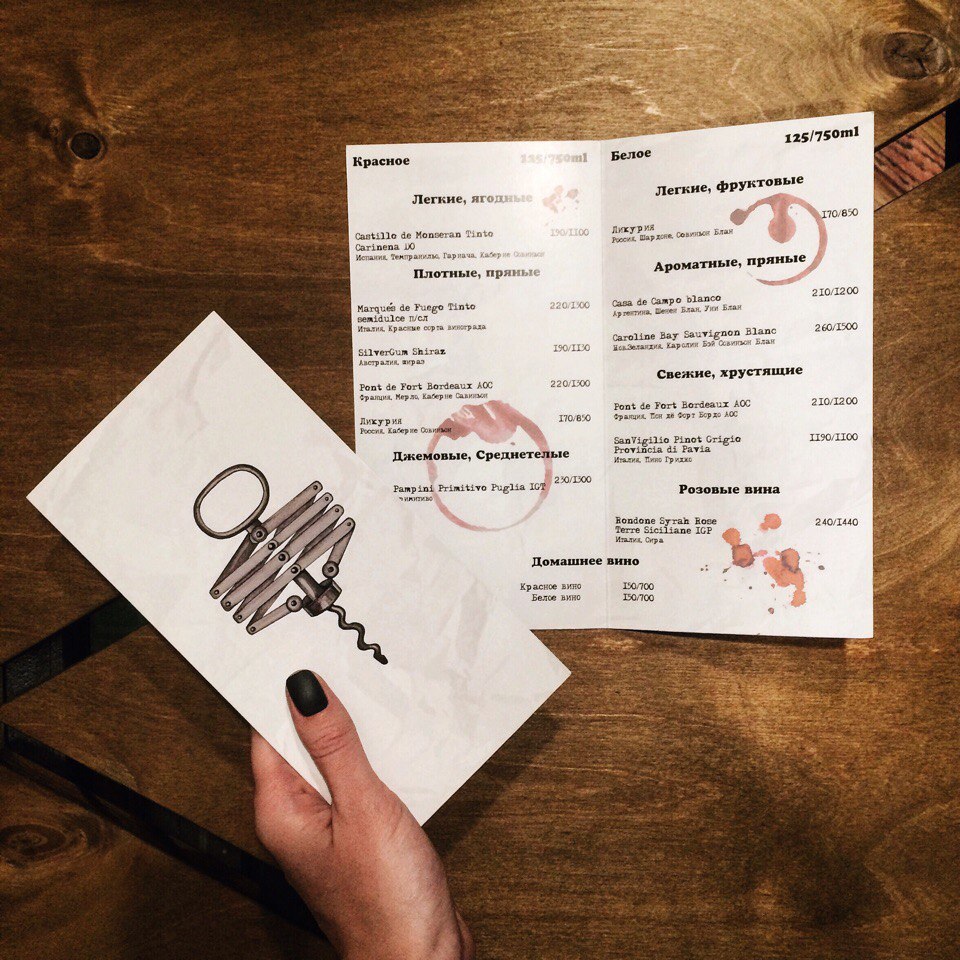 Красное 125/750ml
Легкие, ягодные
Castillo de Monseran Tinto 190/1100
Carinena DO
Испания, Темпранильо, Гарнача, Каберне Совиньон
Плотные, пряные
Marqués de Fuego Tinto 220/1300
semidulce п/сл
Италия, Красные сорта винограда
SilverGum Shiraz 190/1130
Австралия, шираз
Pont de Fort Bordeaux AOC 220/1300
Франция, Мерло, Каберне Савиньон
Ликурия 170/850
Россия, Каберне Совиньон
Джемовые, Среднетелые
Pampini Primitivo Puglia IGT 230/1300
Белое 125/750ml
Легкие, фруктовые
Ликурия 170/850
Россия, Шардоне, Совиньон Блан
Ароматные, пряные
Casa de Campo blanco 210/1200
Аргентина, Шенен Блан, Уни Блан
Caroline Bay Sauvignon Blanc 260/1500
НовЗеландия, Каролин Бэй Совиньон Блан
Свежие, хрустящие
Pont de Fort Bordeaux AOC 210/1200
Франция, Пон дё Форт Бордо АОС
SanVigilio Pinot Grigio 1190/1100
Provincia di Pavia
Италия, Пино Гриджо
Розовые вина
Rondone Syrah Rose 240/1440
Terre Siciliane IGP
Италия, Сира
Домашнее вино
Красное вино 150/700
Белое вино 150/700